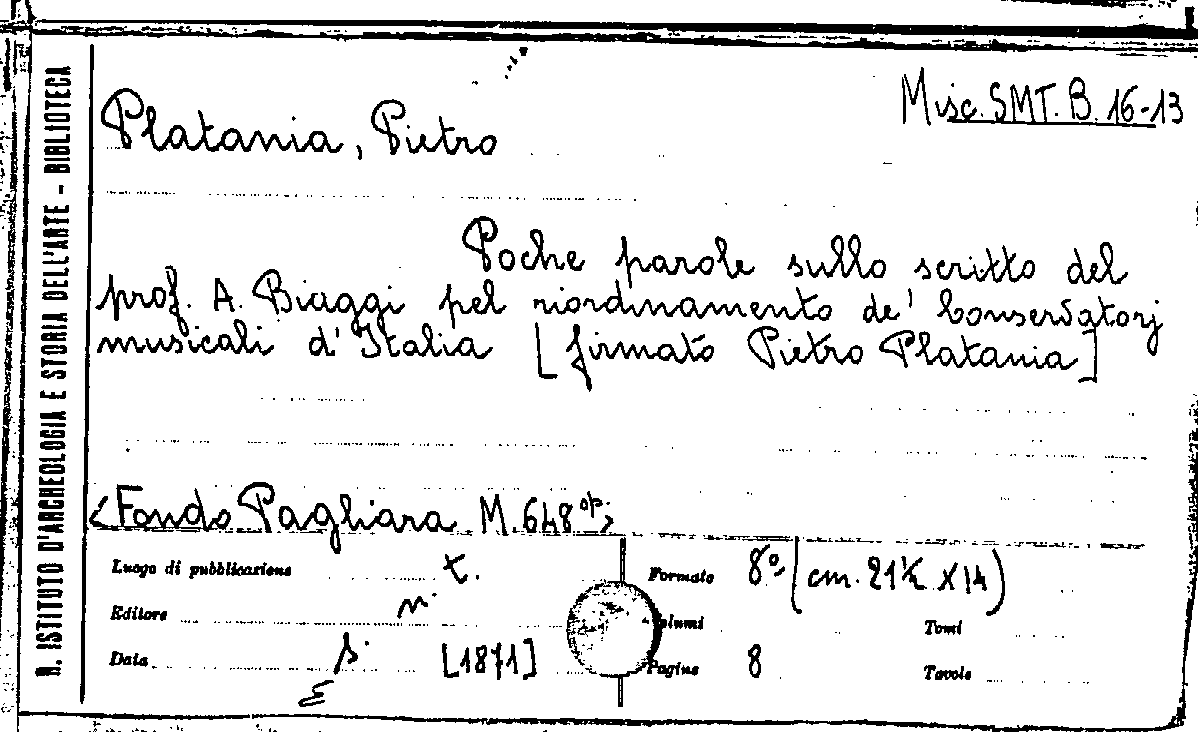 R. ISTITUTO D'ARCHEOLOGIA E STORIA DELL'ARTE - BIBLIOTECA
Misc. SMT. B. 16-13
Platania, Pietro
Poche parole sullo scritto del
prof. A. Biaggi pel riordinamento de' Conservatorj
musicali d'Italia [firmato Pietro Platania]
<Fondo Pagliara M. 648 op>
Luogo di pubblicazione t. Formato 8° (cm. 21½ X 14)
Editore n. Volumi Tomi
Data s. [1871] Pagine 8 Tavole